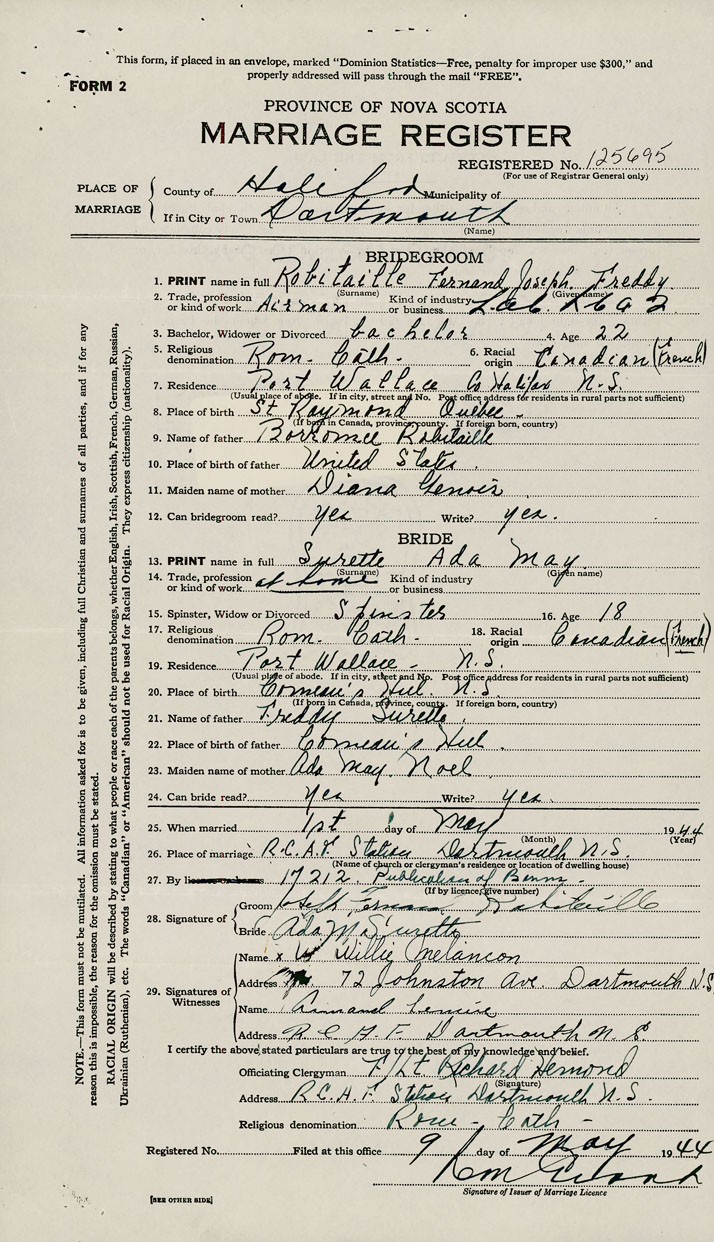 This form, if placed in an envelope, marked "Dominion Statistics—Free, penalty for improper use $300," and
properly addressed will pass through the mail "FREE".
FORM 2
PROVINCE OF NOVA SCOTIA
MARRIAGE REGISTER
REGISTERED No. 125695
(For use of Registrar General only)
PLACE OF MARRIAGE
County of Municipality of
If in City or Town Dartmouth
(Name)
BRIDEGROOM
1. PRINT name in full Robitaille Fernand Joseph Freddy
(Surname) (Given name)
2. Trade, profession or kind of work Airman Kind of industry or business
3. Bachelor, Widower or Divorced bachelor 4. Age 22
5. Religious denomination Rom- Cath- 6. Racial origin Canadian (French)
7. Residence Port Wallace Co Halifax N.S.
(Usual place of abode. If in city, street and No. Post office address for residents in rural parts not sufficient)
8. Place of birth St Raymond Quebec-
(If born in Canada, province, county. If foreign born, country)
9. Name of father Borromee Robitaille
10. Place of birth of father United States.
11. Maiden name of mother Diana Genois
12. Can bridegroom read? yes Write? yes.
BRIDE
13. PRINT name in full Surette Ada May
(Surname) (Given name)
14. Trade, profession or kind of work at home Kind of industry or business
15. Spinster, Widow or Divorced Spinster 16. Age 18
17. Religious denomination Rom- Cath- 18. Racial origin Canadian (French)
19. Residence Port Wallace - N.S.
(Usual place of abode. If in city, street and No. Post office address for residents in rural parts not sufficient)
20. Place of birth Comeau's Hill N.S.
(If born in Canada, province, county. If foreign born, country)
21. Name of father Freddy Surette
22. Place of birth of father Comeau's Hill
23. Maiden name of mother Ada May Noel
24. Can bride read? Yes Write? yes.
25. When married 1st day of May 1944
(Month) (Year)
26. Place of marriage R.C.A.F Station Dartmouth N.S.
(Name of church or clergyman's residence or location of dwelling house)
27. By 17212. Publication of Banns-
(If by licence, give number)
28. Signature of
Groom Joseph Fernand Robitaille
Bride Ada M. Surette
29. Signatures of Witnesses
Name x Willie Melancon
Address 72 Johnston Ave. Dartmouth N.S
Name Armand
Address R C A F Dartmouth N. S.
I certify the above stated particulars are true to the best of my knowledge and belief.
Officiating Clergyman F/Lt Richard Desmond
(Signature)
Address R.C.A.F Station Dartmouth N.S.
Religious denomination Rom- Cath-
Registered No. Filed at this office 9 day of May 1944
Signature of Issuer of Marriage Licence
[SEE OTHER SIDE]
NOTE.—This form must not be mutilated. All information asked for is to be given, including full Christian and surnames of all parties, and if for any
reason this is impossible, the reason for the omission must be stated.
RACIAL ORIGIN will be described by stating to what people or race each of the parents belongs, whether English, Irish, Scottish, French, German, Russian,
Ukrainian (Ruthenian), etc. The words "Canadian" or "American" should not be used for Racial Origin. They express citizenship (nationality).